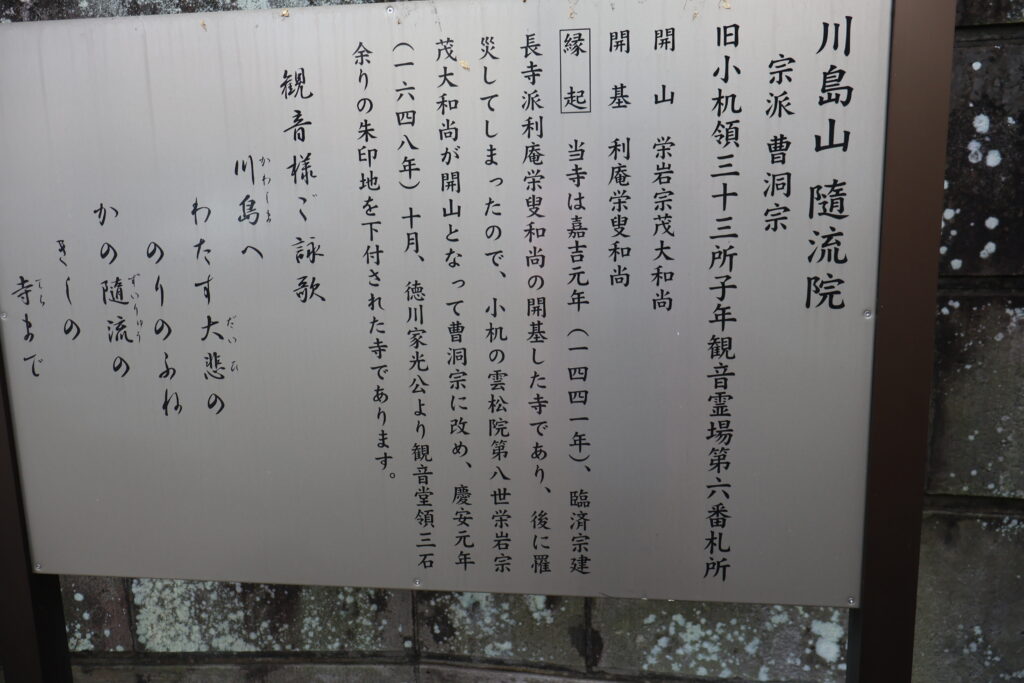 川島山 隨流院
宗派 曹洞宗
旧小机領三十三所子年観音霊場第六番札所
開山 栄岩宗茂大和尚
開基 利庵栄叟和尚
縁起 当寺は嘉吉元年(一四四一年)、臨済宗建
長寺派利庵栄叟和尚の開基した寺であり、後に罹
災してしまったので、小机の雲松院第八世栄岩宗
茂大和尚が開山となって曹洞宗に改め、慶安元年
(一六四八年)十月、徳川家光公より観音堂領三石
余りの朱印地を下付された寺であります。
観音様ご詠歌
川島へ
かわしま
わたす大悲の
だいひ
のりのふね
かの隨流の
ずいりゅう
きしの
寺まで
てら